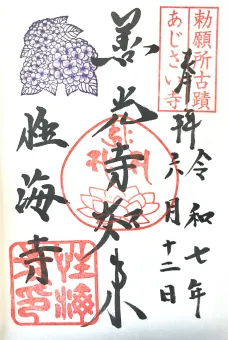 勅願所古蹟
あじさい寺
奉拝
令和七年
六月十二日
善光寺如来
性海寺
性海